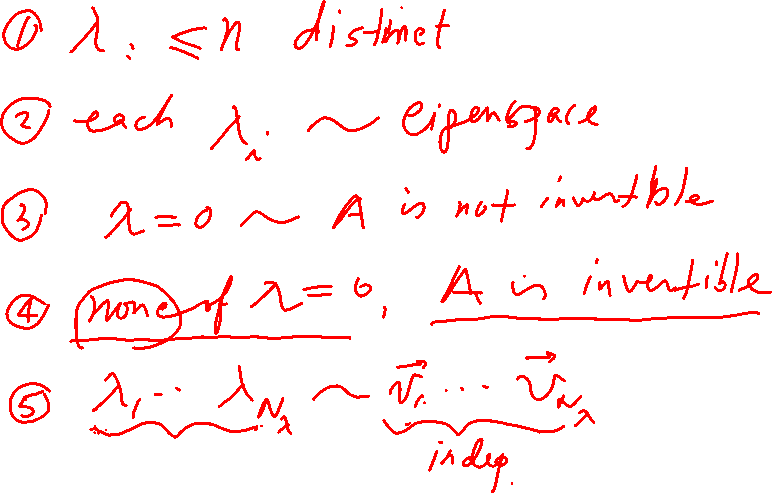 ① λᵢ ≤ n distinct
② each λᵢ ~ eigenspace
③ λ = 0 ~ A is not invertible
④ none of λ = 0, A is invertible
⑤ λ₁ ... λ_{N_λ} ~ v⃗₁ ... v⃗_{N_λ}
indep.